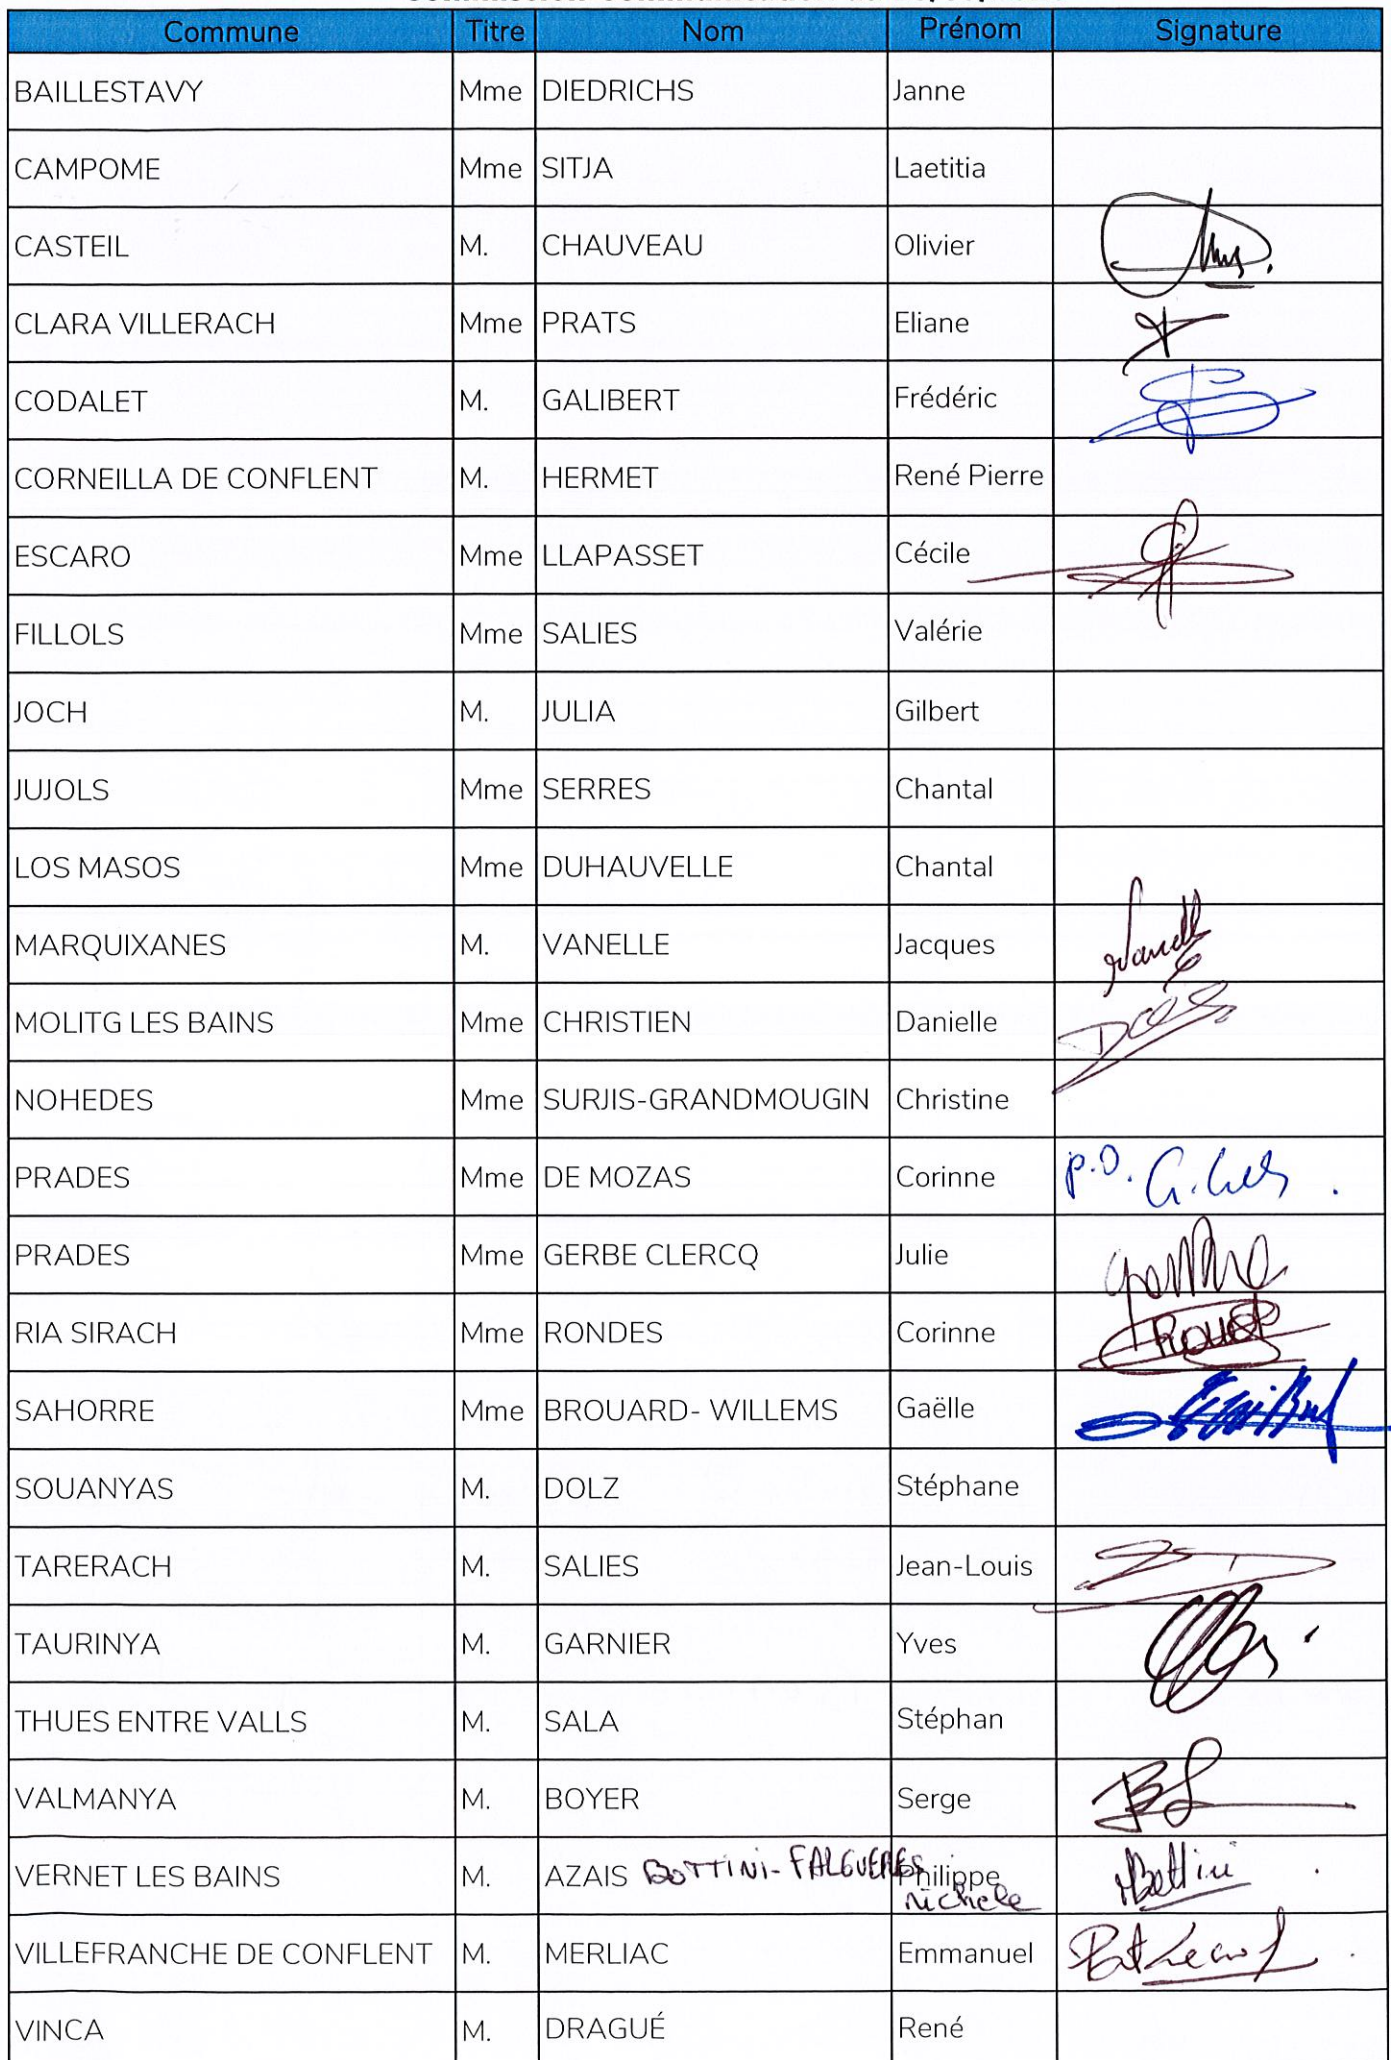 Commune Titre Nom Prénom Signature
BAILLESTAVY Mme DIEDRICHS Janne
CAMPOME Mme SITJA Laetitia
CASTEIL M. CHAUVEAU Olivier
CLARA VILLERACH Mme PRATS Eliane
CODALET M. GALIBERT Frédéric
CORNEILLA DE CONFLENT M. HERMET René Pierre
ESCARO Mme LLAPASSET Cécile
FILLOLS Mme SALIES Valérie
JOCH M. JULIA Gilbert
JUJOLS Mme SERRES Chantal
LOS MASOS Mme DUHAUVELLE Chantal
MARQUIXANES M. VANELLE Jacques
MOLITG LES BAINS Mme CHRISTIEN Danielle
NOHEDES Mme SURJIS-GRANDMOUGIN Christine
PRADES Mme DE MOZAS Corinne P.O.
PRADES Mme GERBE CLERCQ Julie
RIA SIRACH Mme RONDES Corinne
SAHORRE Mme BROUARD- WILLEMS Gaëlle
SOUANYAS M. DOLZ Stéphane
TARERACH M. SALIES Jean-Louis
TAURINYA M. GARNIER Yves
THUES ENTRE VALLS M. SALA Stéphan
VALMANYA M. BOYER Serge
VERNET LES BAINS M. AZAIS BOTTINI-FALGUERES Philippe MBottini
Michele
VILLEFRANCHE DE CONFLENT M. MERLIAC Emmanuel
VINCA M. DRAGUÉ René